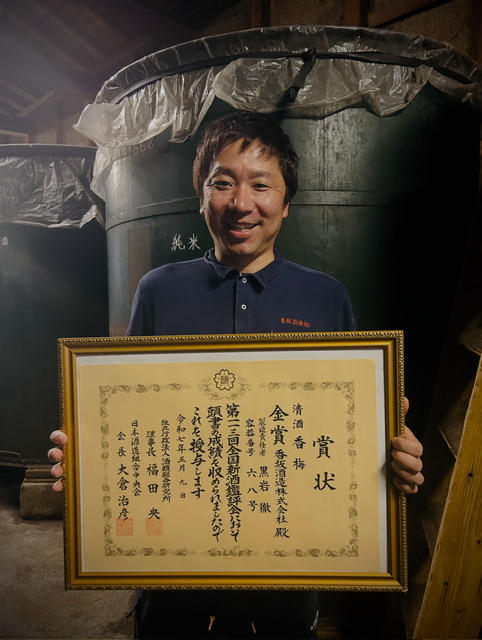 純米
賞状
清酒 香梅
金賞 香坂酒造株式会社 殿
製造責任者 黒岩 徹
容器番号 六八号
第一一三回全国新酒鑑評会において
頭書の成績を収められましたので
これを授与します
令和七年五月九日
独立行政法人酒類総合研究所
理事長 福田 央
日本酒造組合中央会
会長 大倉治彦